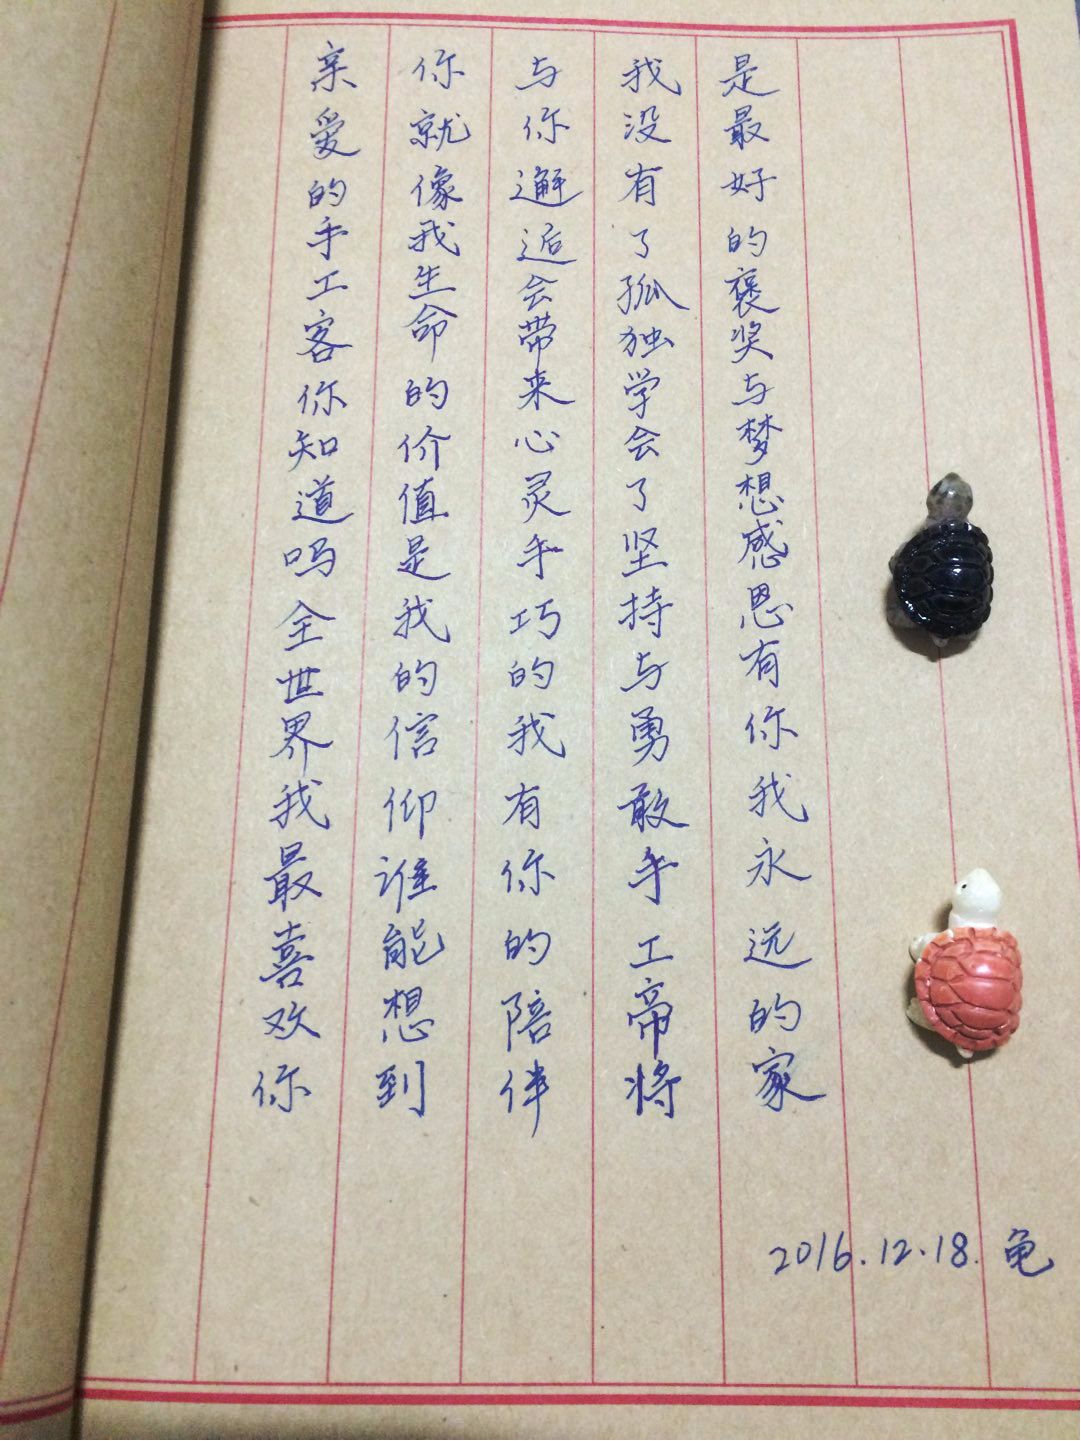 亲爱的手工客你知道吗全世界我最喜欢你
你就像我生命的价值是我的信仰谁能想到
与你邂逅会带来心灵手巧的我有你的陪伴
我没有了孤独学会了坚持与勇敢手工帝将
是最好的褒奖与梦想感恩有你我永远的家
2016.12.18. 龟